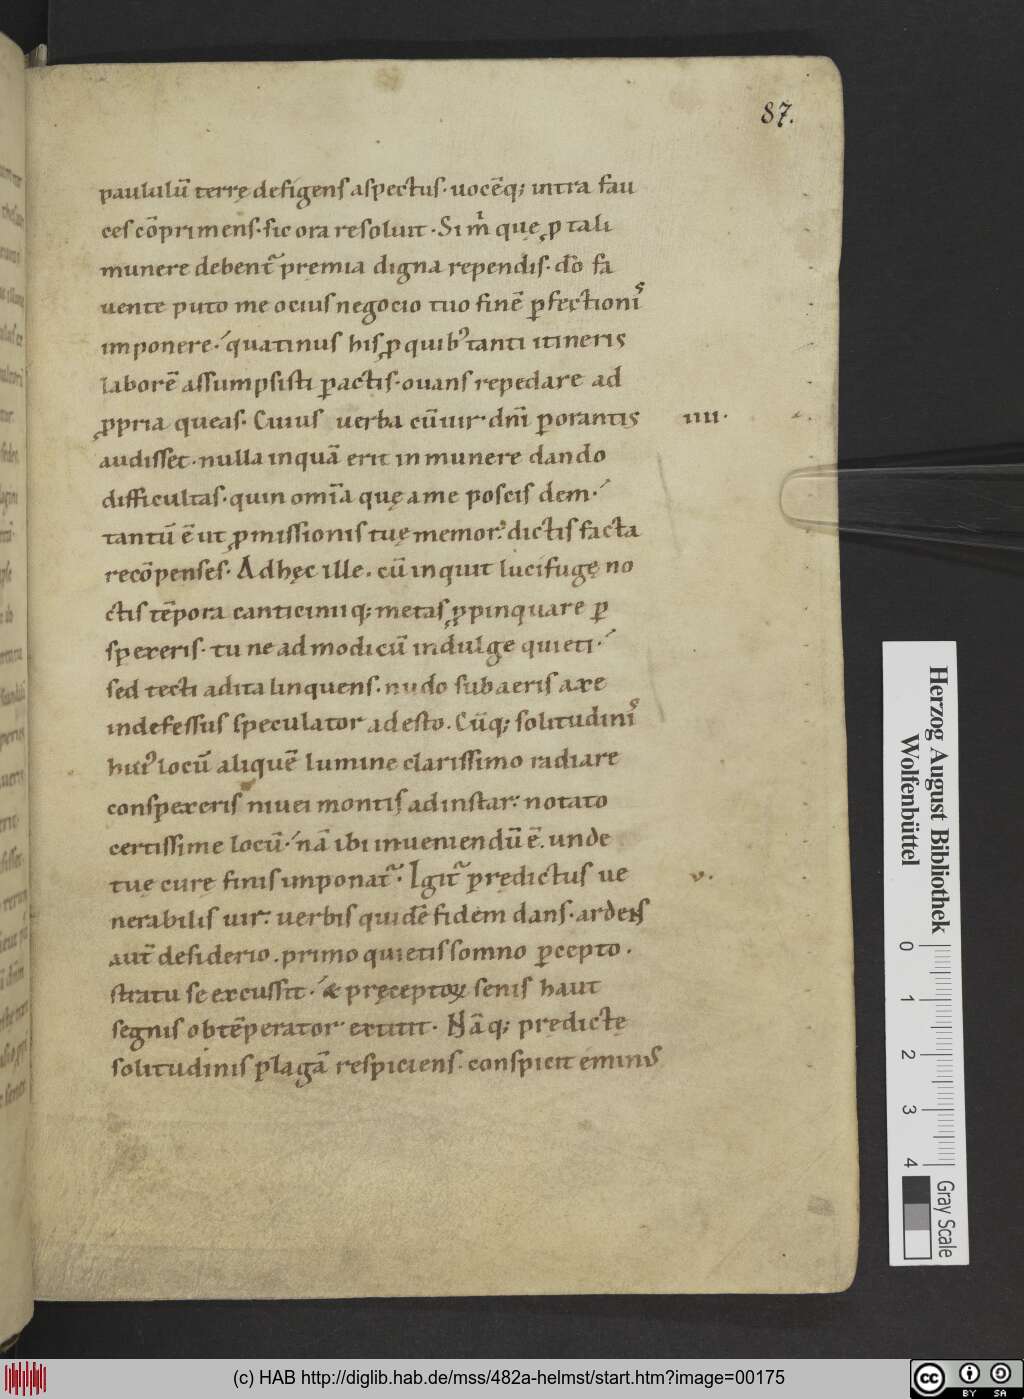 87.
paululū terrę defigens aspectus· uocēq; intra fau
ces cōprimens· sic ora resoluit· Si m̍ que ꝓ tali
munere debent᷒ premia digna rependis· dō fa
uente puto me ocius negocio tuo finē ꝑfectionis
imponere· quatinus his ꝓ quibꝰ tanti itineris
laborē assumpsisti ꝑactis· ouans repedare ad
ꝓpria queas· Cuius uerba cū uir dn̄i ꝑorantis
iiii·
audisset· nulla inquā erit in munere dando
difficultas· quin om̄ia quę a me poscis dem·
tantū ē ut ꝓmissionis tuę memor· dictis facta
recōpenses· Ad hęc ille· cū inquit lucifugę no
ctis tēpora canticiniiq; metas ꝓpinquare ꝑ
spexeris· tu ne ad modicū indulge quieti·
sed tecti adita linquens· nudo sub aeris axe
indefessus speculator adesto· Cūq; solitudinis
huiꝰ locū aliquē lumine clarissimo radiare
conspexeris niuei montis ad instar· notato
certissime locū· nā ibi inueniendū ē· unde
tuę curę finis imponat᷒· Igit᷒ prędictus ue
v·
nerabilis uir· uerbis quidē fidem dans· ardens
aut̄ desiderio· primo quietis somno ꝑcepto·
stratu se excussit· & pręceptoꝝ senis haut
segnis obtēperator extitit· Nāq; prędictę
solitudinis plagā respiciens· conspicit eminus
Herzog August Bibliothek
Wolfenbüttel
0 1 2 3 4
Gray Scale
(c) HAB http://diglib.hab.de/mss/482a-helmst/start.htm?image=00175
cc BY SA